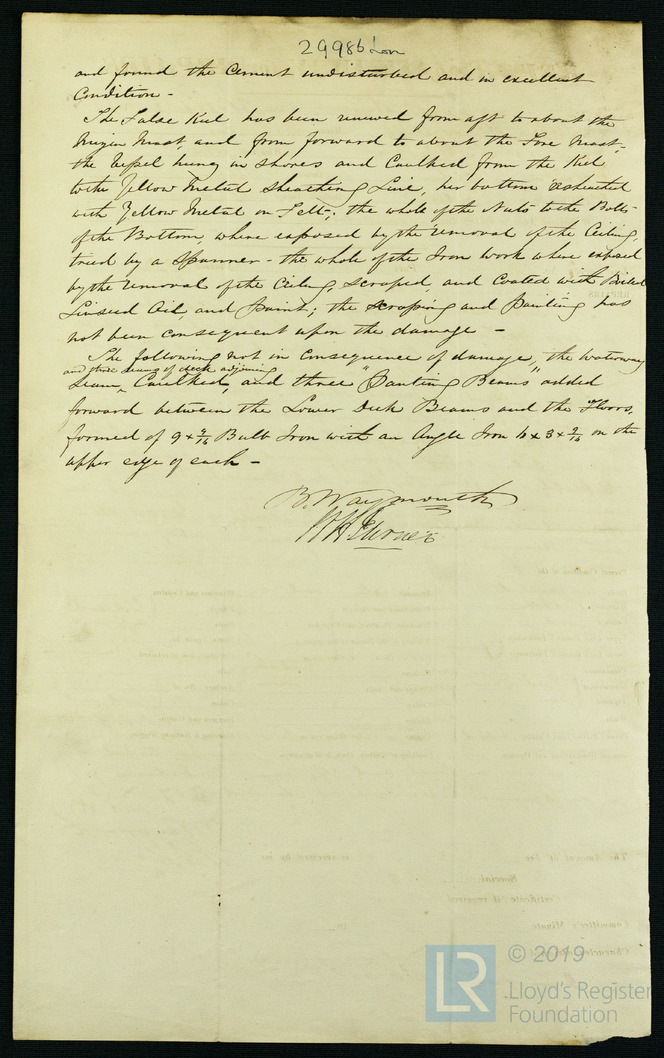 29986 Lon
and found the Cement undisturbed and in excellent
Condition -
The False Keel has been renewed from aft to about the
Mizen Mast, and from forward to about the Fore Mast,
the Vessel hung in Shores and Caulked from the Keel
to the Yellow Metal Sheathing Line, her bottom resheathed
with Yellow Metal on Felt; the whole of the Nuts to the Bolts
of the Bottom, where exposed by the removal of the Ceiling,
tried by a Spanner - the whole of the Iron Work where exposed
by the removal of the Ceiling, scraped, and Coated with Boiled
Linseed Oil and Paint; the scraping and Painting has
not been consequent upon the damage -
The following not in consequence of damage, the Waterway
and three seams of deck adjoining
Seam, Caulked, and three "Panting Beams" added
forward between the Lower Deck Beams and the Floors,
formed of 9 x 9/16 Bulb Iron with an Angle Iron 6 x 3 x 9/16 on the
upper edge of each -
B. Waymouth
W H Turner
LR
© 2019
Lloyd's Register
Foundation